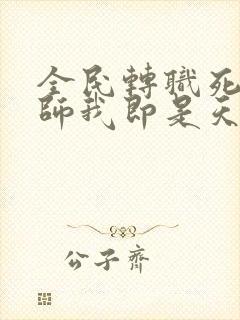 全民轉職死
師我即是天
公子齊